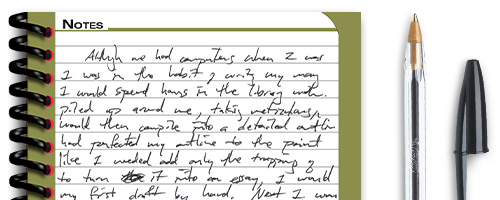 NOTES
Although we had computers when I was
I was in the habit of writing my way
I would spend hours in the library with
piled up around me, taking meticulous
would then compile into a detailed outline
had perfected my outline to the point
like I needed add only the trappings of
to turn it into an essay. I would
my first draft by hand. Next I would